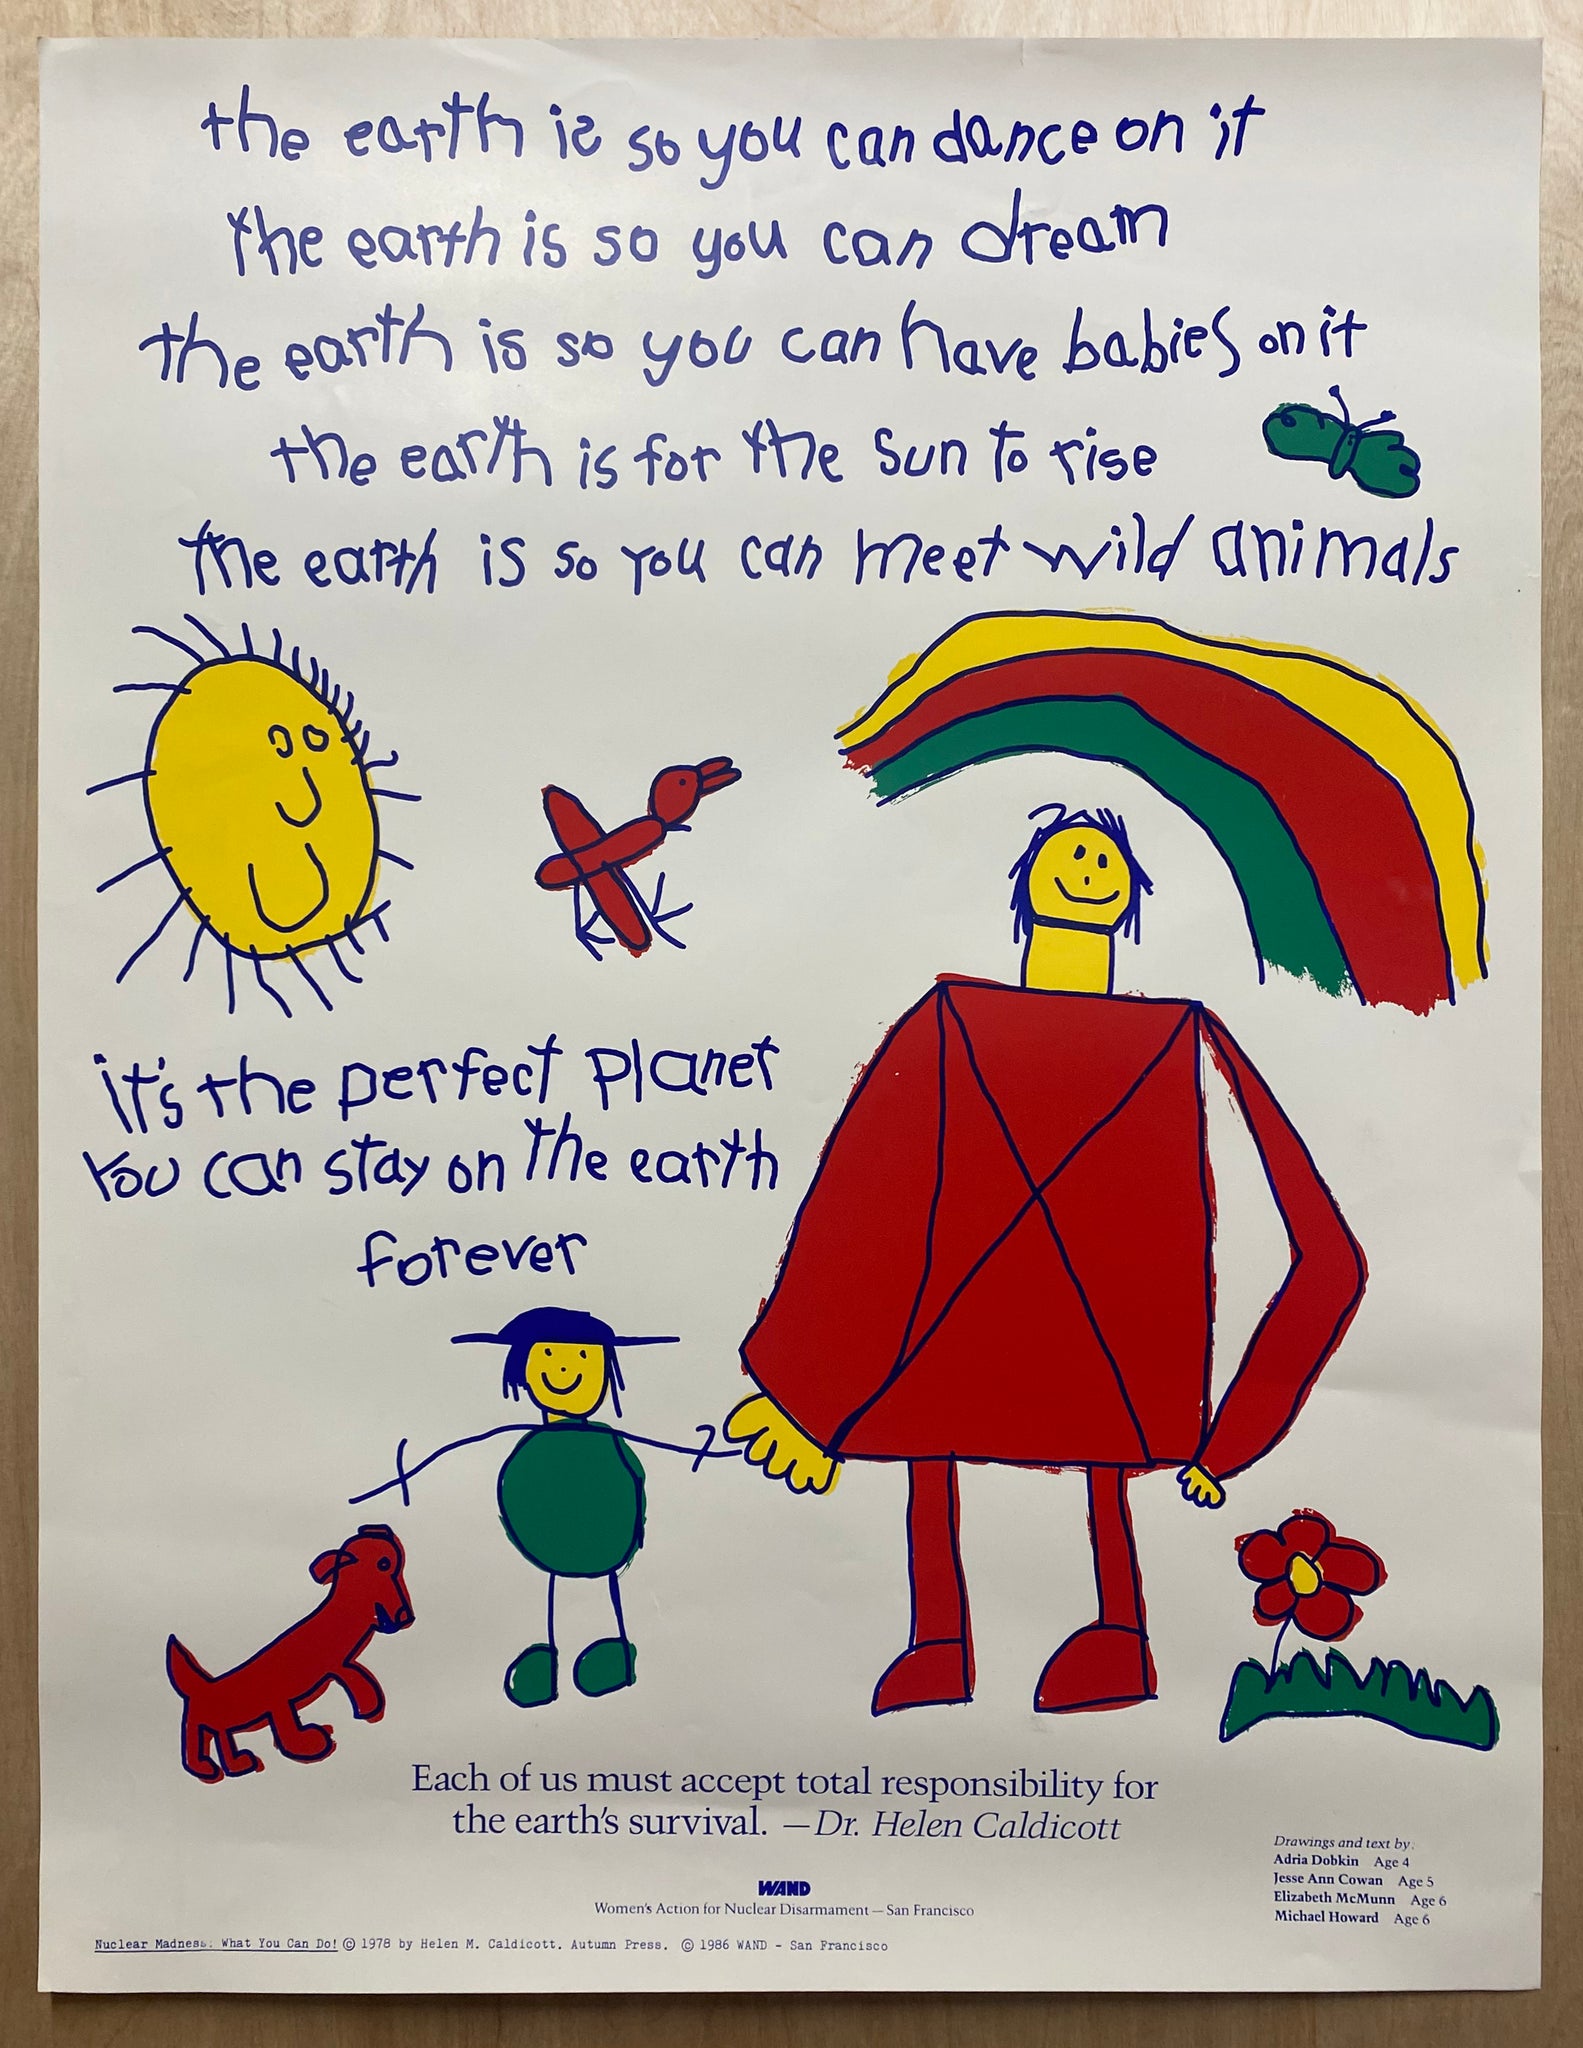 the earth is so you can dance on it
the earth is so you can dream
the earth is so you can have babies on it
the earth is for the sun to rise
the earth is so you can meet wild animals
it's the perfect planet
You can stay on the earth
forever
Each of us must accept total responsibility for
the earth's survival. —Dr. Helen Caldicott
Drawings and text by:
Adria Dobkin Age 4
Jesse Ann Cowan Age 5
Elizabeth McMunn Age 6
Michael Howard Age 6
WAND
Women's Action for Nuclear Disarmament — San Francisco
Nuclear Madness: What You Can Do! © 1978 by Helen M. Caldicott. Autumn Press. © 1986 WAND - San Francisco